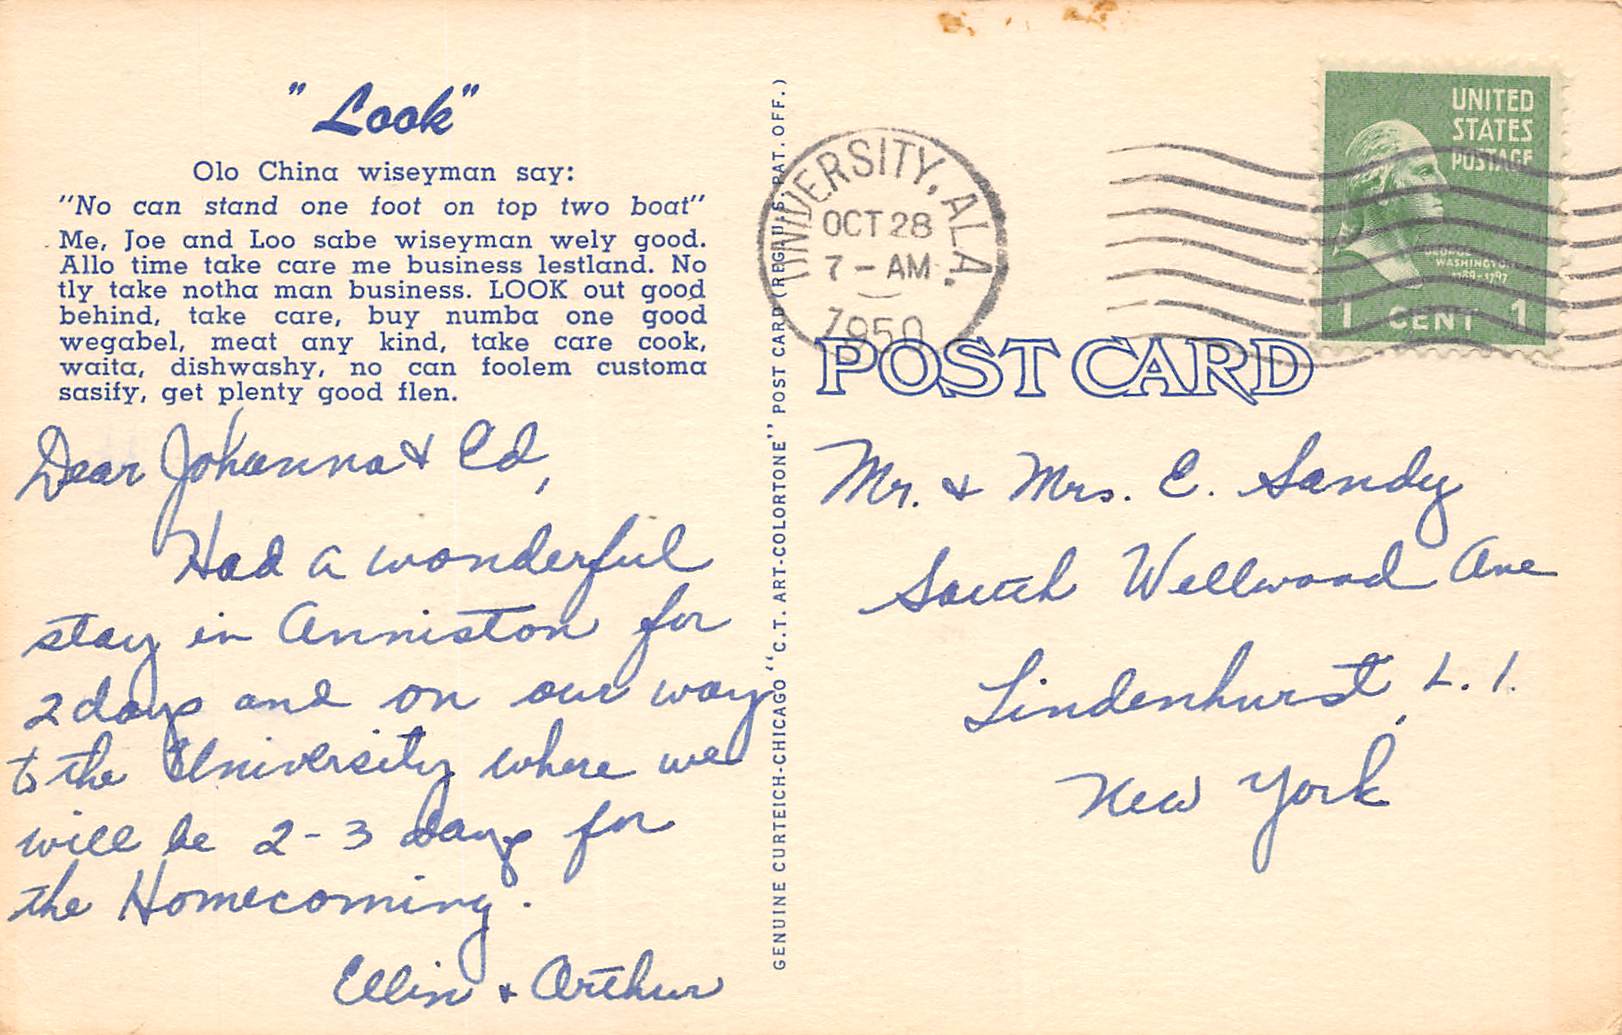 "Look"
Olo China wiseyman say:
"No can stand one foot on top two boat"
Me, Joe and Loo sabe wiseyman wely good.
Allo time take care me business lestland. No
tly take notha man business. LOOK out good
behind, take care, buy numba one good
wegabel, meat any kind, take care cook,
waita, dishwashy, no can foolem customa
sasify, get plenty good flen.
Dear Johanna & Ed,
Had a wonderful
stay in Anniston for
2 days and on our way
to the University where we
will be 2-3 days for
the Homecoming.
Ellin & Arthur
GENUINE CURTEICH-CHICAGO "C.T. ART-COLORTONE" POST CARD (REG. U.S. PAT. OFF.)
UNIVERSITY, ALA.
OCT 28
7-AM
1950
UNITED
STATES
POSTAGE
GEORGE
WASHINGTON
1789-1797
1 CENT 1
POST CARD
Mr. & Mrs. E. Sandy
South Wellwood Ave
Lindenhurst, L. I.
New York